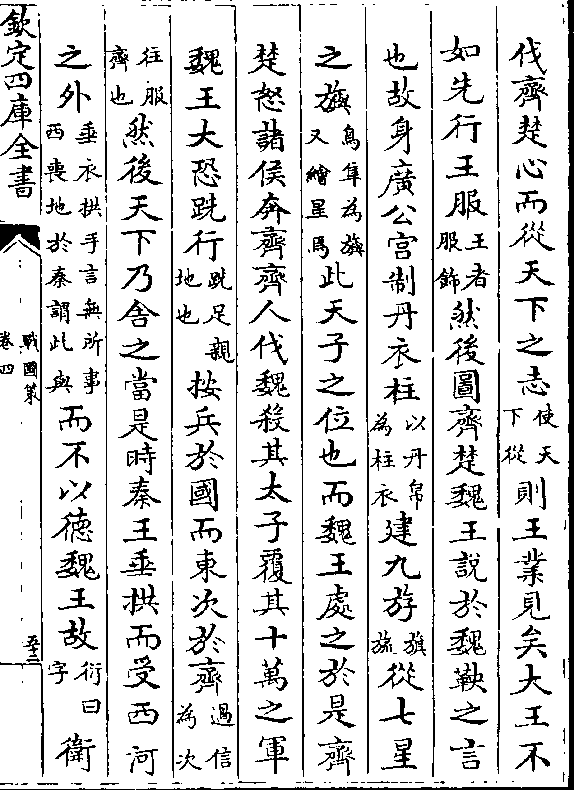 伐齊楚心而從天下之志使天下從則王業見矣大王不
如先行王服王者服飾然後圖齊楚魏王說於魏鞅之言
也故身廣公宫制丹衣柱以丹帛為柱衣建九斿旗旒從七星
之旟鳥隼為旟又繪星焉此天子之位也而魏王處之於是齊
楚怒諸侯奔齊齊人伐魏殺其太子覆其十萬之軍
魏王大恐跣行跣足親地也按兵於國而東次於齊過信為次
往服齊也然後天下乃舍之當是時秦王垂拱而受西河
之外垂衣拱手言無所事西喪地於秦謂此與而不以德魏王故衍曰字衛
欽定四庫全書
戰國策
卷四
五十三